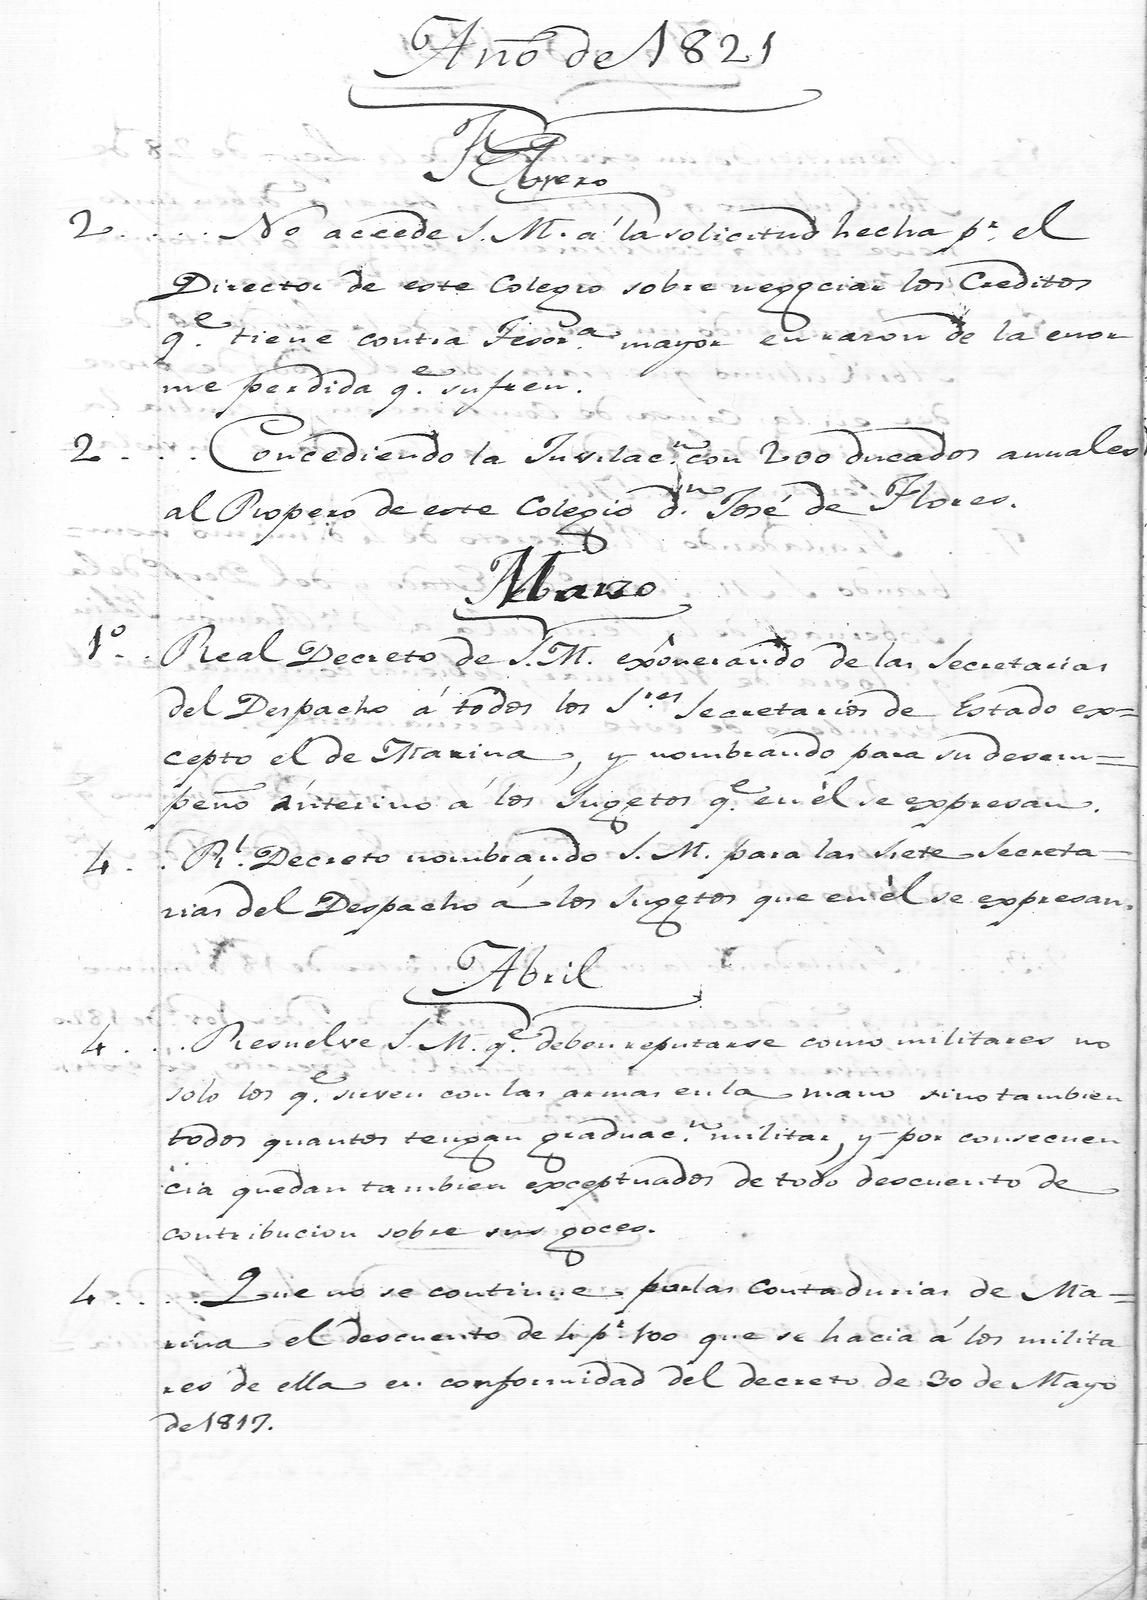 Año de 1821
Febrero
2. . . . No accede S. M. á la solicitud hecha pr. el
Director de este Colegio sobre negociar los Creditos
qe. tiene contra Tesora. mayor en razon de la enor
me perdida qe. sufren.
2. . . . Concediendo la Juvilacn. con 200 ducados annuales
al Ropero de este Colegio dn. José de Flores.
Marzo
1º. . Real Decreto de S. M. exônerando de las Secretarias
del Despacho á todos los Sres. Secretarios de Estado ex=
cepto el de Marina, y nombrando para su desem=
peño ínterino á los Sugetos qe. en él se expresan.
4. . Rl. Decreto nombrando S. M. para las siete Secreta=
rias del Despacho á los Sugetos que en él se expresan.
Abril
4. . . . Resuelve S. M. qe. deben reputarse como militares no
solo los qe. sirven con las armas en la mano sino tambien
todos quantos tengan graduacn. militar, y por consecuen
cia quedan tambien exceptuados de todo descuento de
contribucion sobre sus goces.
4. . . . Que no se continue por las Contadurias de Ma=
rina el descuento de 4 pr. 100 que se hacia á los milita
res de ella en conformidad del decreto de 30 de Mayo
de 1817.